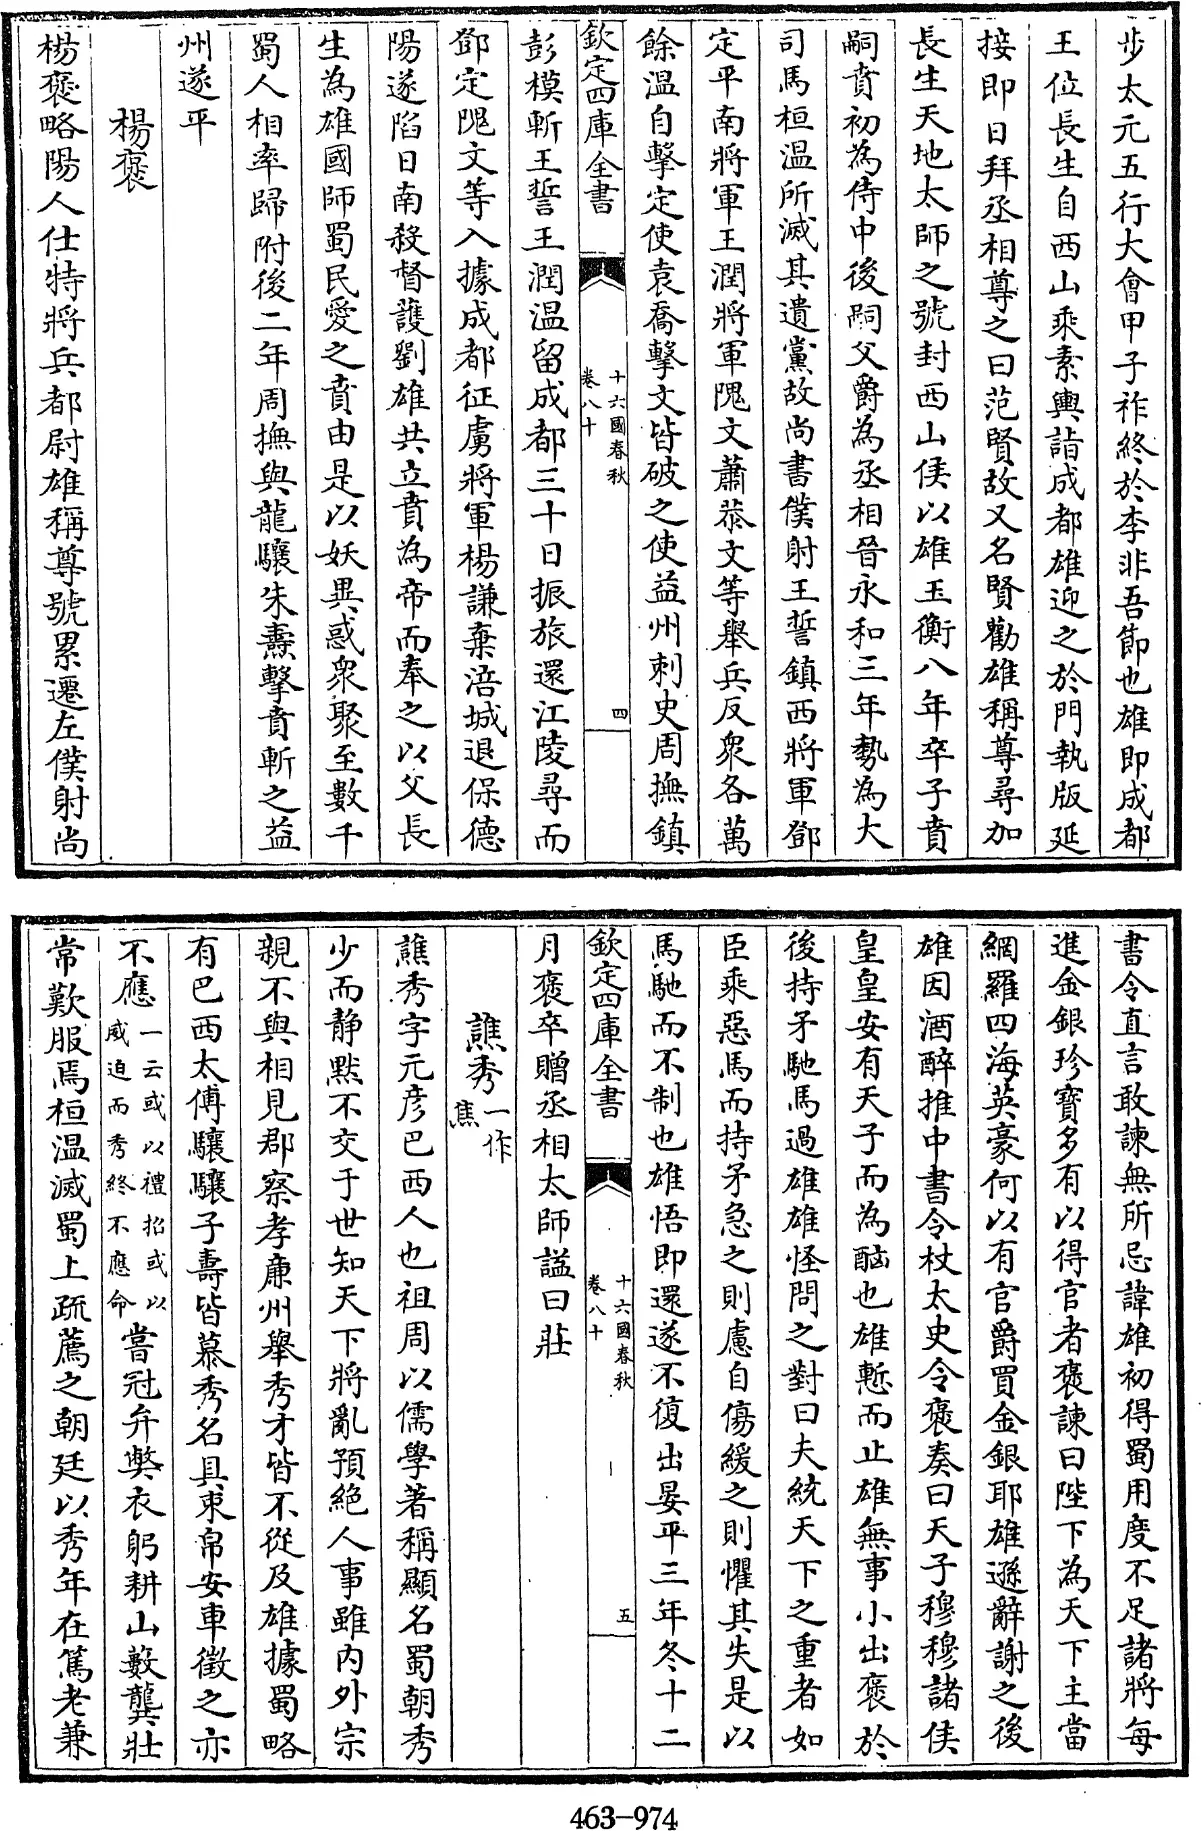 步太元五行大會甲子祚終於李非吾節也雄即成都
王位長生自西山乘素輿詣成都雄迎之於門執版延
接即日拜丞相尊之曰范賢故又名賢勸雄稱尊尋加
長生天地太師之號封西山侯以雄玉衡八年卒子賁
嗣賁初為侍中後嗣父爵為丞相晉永和三年勢為大
司馬桓溫所滅其遺黨故尚書僕射王誓鎮西將軍鄧
定平南將軍王潤將軍隗文蕭恭文等舉兵反衆各萬
餘溫自擊定使袁喬擊文皆破之使益州刺史周撫鎮
欽定四庫全書
十六國春秋
卷八十
四
彭模斬王誓王潤溫留成都三十日振旅還江陵尋而
鄧定隗文等入據成都征虜將軍楊謙棄涪城退保德
陽遂陷日南殺督護劉雄共立賁為帝而奉之以父長
生為雄國師蜀民愛之賁由是以妖異惑衆聚至數千
蜀人相率歸附後二年周撫與龍驤朱燾擊賁斬之益
州遂平
楊褒
楊褒略陽人仕特將兵都尉雄稱尊號累遷左僕射尚
書令直言敢諫無所忌諱雄初得蜀用度不足諸將每
進金銀珍寶多有以得官者褒諫曰陛下為天下主當
網羅四海英豪何以有官爵買金銀耶雄遜辭謝之後
雄因酒醉推中書令杖太史令褒奏曰天子穆穆諸侯
皇皇安有天子而為酗也雄慙而止雄無事小出褒於
後持矛馳馬過雄雄怪問之對曰夫統天下之重者如
臣乘惡馬而持矛急之則慮自傷緩之則懼其失是以
馬馳而不制也雄悟即還遂不復出晏平三年冬十二
欽定四庫全書
十六國春秋
卷八十
五
月褒卒贈丞相太師諡曰莊
譙秀一作焦
譙秀字元彥巴西人也祖周以儒學著稱顯名蜀朝秀
少而靜默不交于世知天下將亂預絕人事雖內外宗
親不與相見郡察孝廉州舉秀才皆不從及雄據蜀略
有巴西太傅驤驤子壽皆慕秀名具束帛安車徵之亦
不應一云或以禮招或以威迫而秀終不應命嘗冠弁獘衣躬耕山藪龔壯
常歎服焉桓溫滅蜀上疏薦之朝廷以秀年在篤老兼
463-974